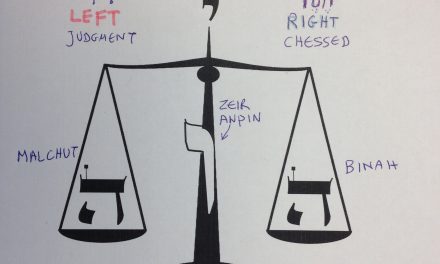 י
LEFT
JUDGMENT
RIGHT
CHESSED
ZEIR
ANPIN
ו
MALCHUT
ה
BINAH
ה